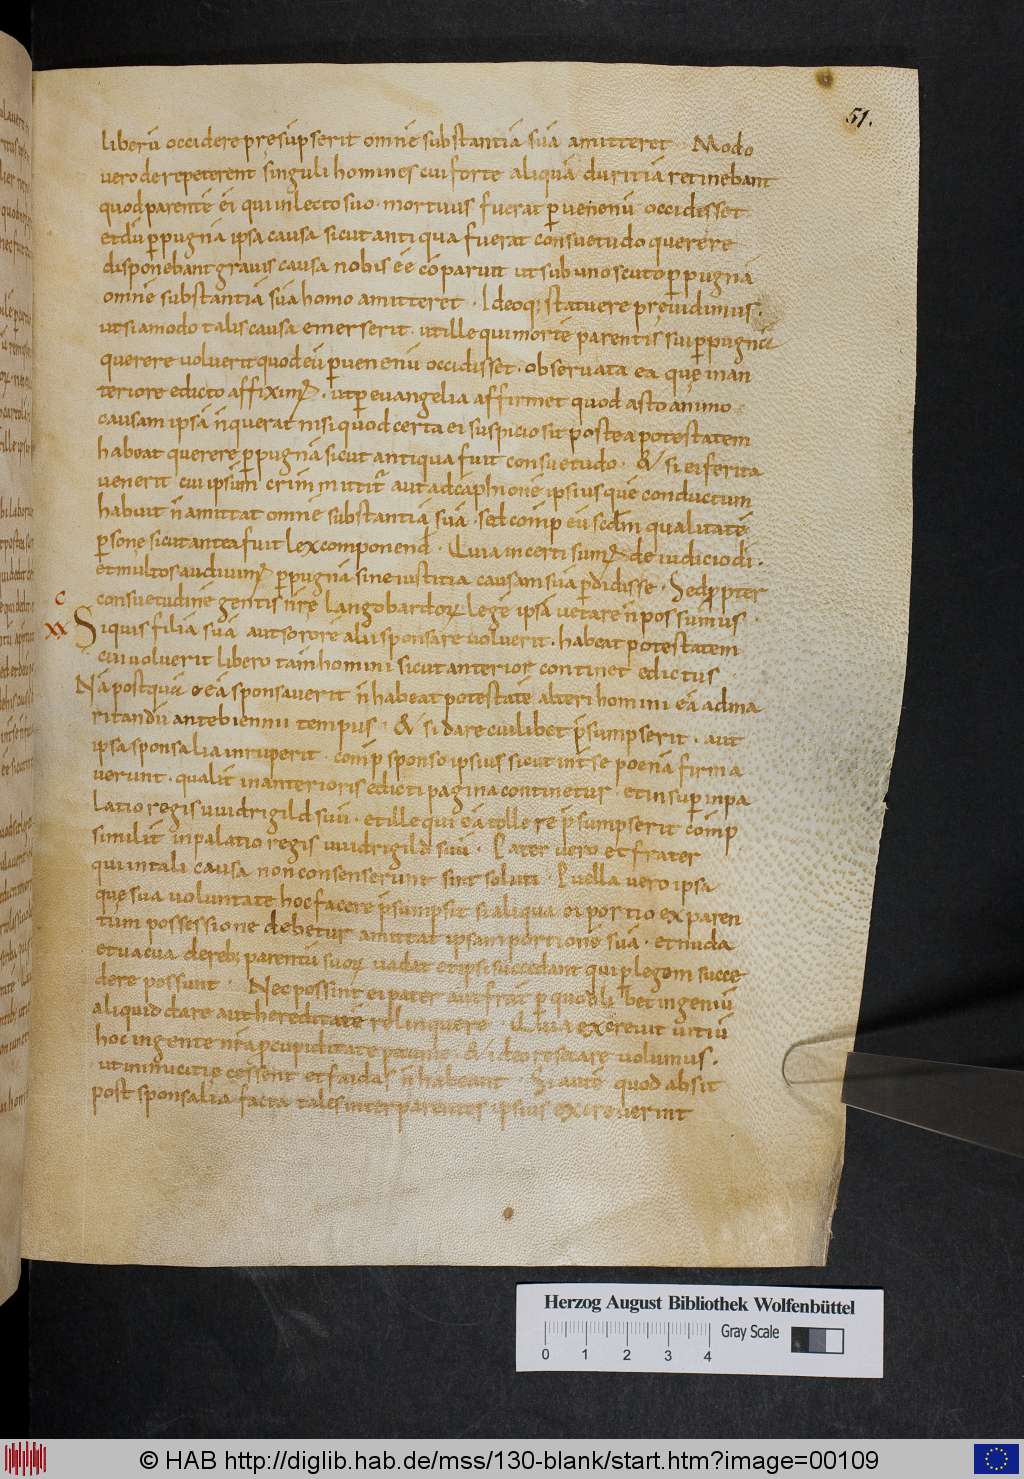 51.
liberū occidere presūpserit omnē substantiā suā amitteret · Modo
vero de repeterent singuli homines cui forte aliquā duritiā retinebant
quod parentē ei qui in lecto suo · mortuus fuerat p̱ venenū occidisset
et dū p̱ pugnā ipsa causa sicut antiqua fuerat consuetudo querere
disponebant gravis causa nobis ēē cōparuit ut sub uno scuto p̱ pugnā
omnē substantiā suā homo amitteret · Ideoq; statuere previdimus ·
ut si amodo talis causa emerserit · ut ille qui mortē parentis sui p̱ pugnā
querere voluerit quod eū p̱ venenū occidisset · observata ea quę in an
teriore edicto affiximꝰ · ut p̱ evangelia affirmet quod asto animo
causam ipsā n̄ querat nisi quod certa ei suspicio sit postea potestatem
habeat querere p̱ pugnā sicut antiqua fuit consuetudo · & si ei ferita
venerit cui ipsūm crim̄ mittit᷑ aut ad cāphionē ipsius quē conductum
habuit n̄ amittat omnē substantiā suā · sed cōmp̄ eū scdm̄ qualitatē
p̱sonę sicut antea fuit lex componend̄ · Quia incerti sumꝰ de iudicio dī ·
et multos audiuimꝰ p̱ pugnā sine iustitia causam suā p̱didisse · Sed ꝓpter
consuetudinē gentis nr̄e langobardoꝝ legē ipsā vetare n̄ possumus ·
c
xx Siquis filiā suā aut sororē alii sponsare voluerit · habeat potestatem
cui voluerit libero tam̄ homini sicut anterior continet edictus
Nā postquā eā sponsaverit n̄ habeat potestatē alteri homini eā ad ma
ritandū ante biennii tempus · & si dare cuilibet p̄sumpserit · aut
ipsa sponsalia inruperit · cōmp̄ sponso ipsius sicut int̄ se poenā firma
verunt · qualit̄ in anterioris edicti pagina continetur · et insup̱ in pa
latio regis uuidrigild suū · et ille qui eā tollere p̄sumpserit cōmp̄
similit̄ in palatio regis uuidrigild suū · Pater vero et frater
qui in tali causa non consenserunt sint soluti · Puella vero ipsa
que sua voluntate hoc facere p̄sumpsit si aliqua ei portio ex paren
tum possessione debetur amittat ipsam portionē suā · et nuda
et vacua de reb; parentū suoꝝ vadat et ipsi succedant qui p̱ legem succe
dere possunt · Nec possint ei pater aut frat̄ p̱ quodlibet ingeniū
aliquid dare aut hereditatē relinquere · Quia excrevit vitiū
hoc in gente nr̄a p̱ cupiditate pecunię · & ideo resecare volumus ·
ut inimicitię cessent et faidas n̄ habeant · Si autē quod absit
post sponsalia facta tales inter parentes ipsius excreverint
Herzog August Bibliothek Wolfenbüttel
Gray Scale
0 1 2 3 4
© HAB http://diglib.hab.de/mss/130-blank/start.htm?image=00109